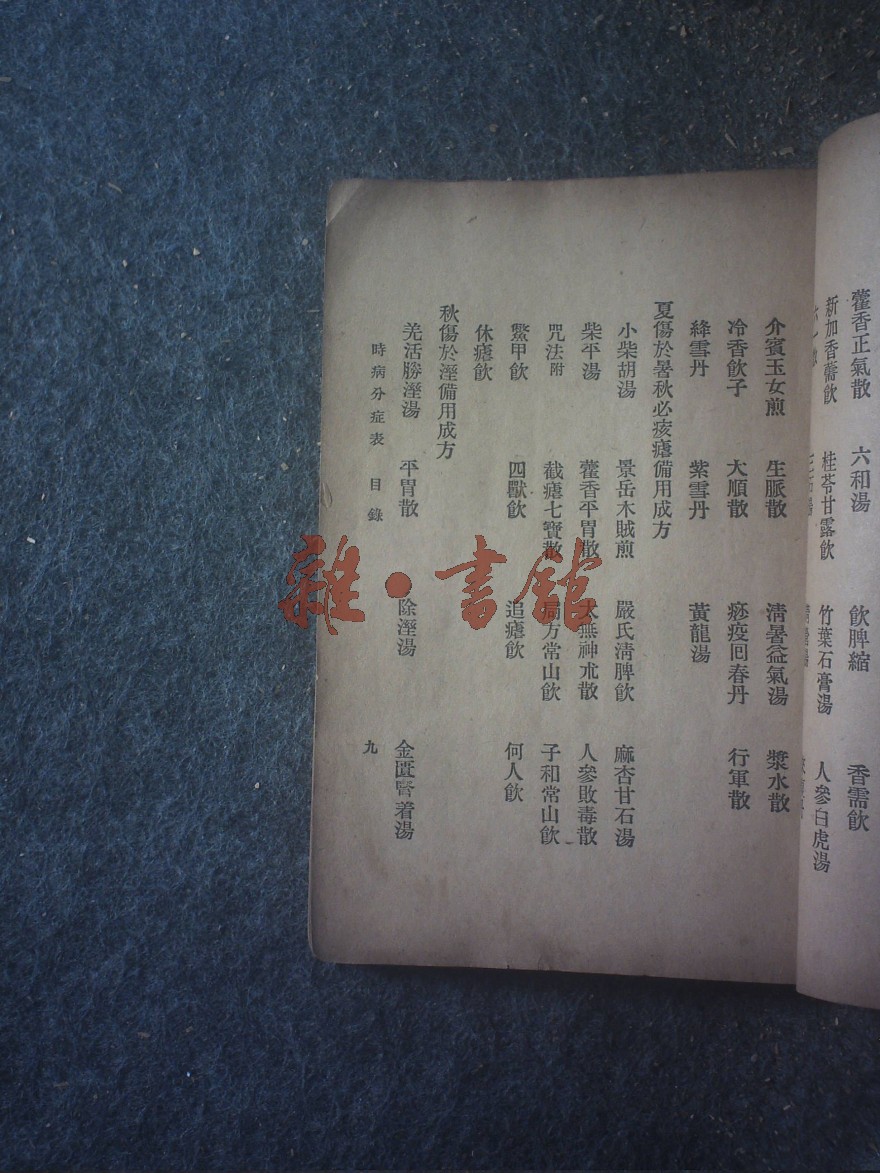 藿香正氣散　六和湯　飲脾縮　香需飲
新加香薷飲　桂苓甘露飲　竹葉石膏湯　人參白虎湯
介賓玉女煎　生脈散　清暑益氣湯　漿水散
冷香飲子　大順散　痧疫回春丹　行軍散
絳雪丹　紫雪丹　黃龍湯
夏傷於暑秋必痎瘧備用成方
小柴胡湯　景岳木賊煎　嚴氏清脾飲　麻杏甘石湯
柴平湯　藿香平胃散　太無神朮散　人參敗毒散
咒法附　截瘧七寶散　局方常山飲　子和常山飲
鱉甲飲　四獸飲　追瘧飲　何人飲
休瘧飲
秋傷於溼備用成方
羌活勝溼湯　平胃散　除溼湯　金匱腎着湯
時病分症表　目錄　九
雜·書館